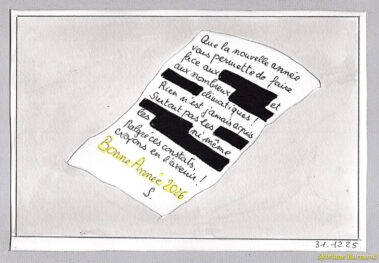 Que la nouvelle année
vous permette de faire
face aux
aux nombreux et
climatiques !
Rien n'est jamais acquis
Surtout pas les
les ni même
Malgré ces constats,
croyons en l'avenir !
Bonne Année 2026
S.
31.12.25
Sylviane Barnand